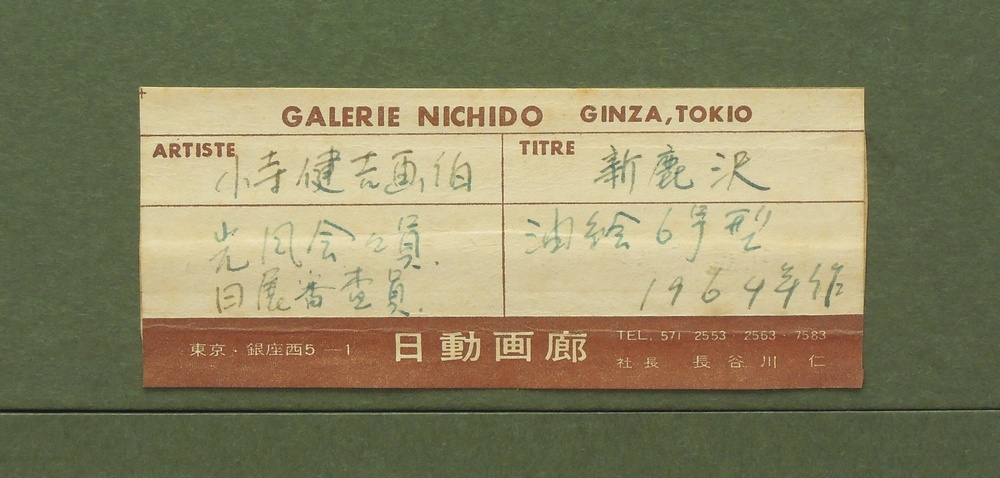 GALERIE NICHIDO GINZA, TOKIO
ARTISTE 小寺健吉画伯
TITRE 新鹿沢
光風会々員.
日展審査員.
油絵6号型
1964年作
東京・銀座西5－1
日動画廊
TEL. 571 2553 2563 7583
社長 長谷川 仁